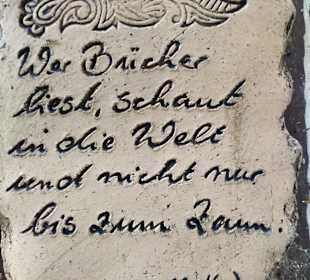 Wer Bücher
liest, schaut
in die Welt
und nicht nur
bis zum Zaun.